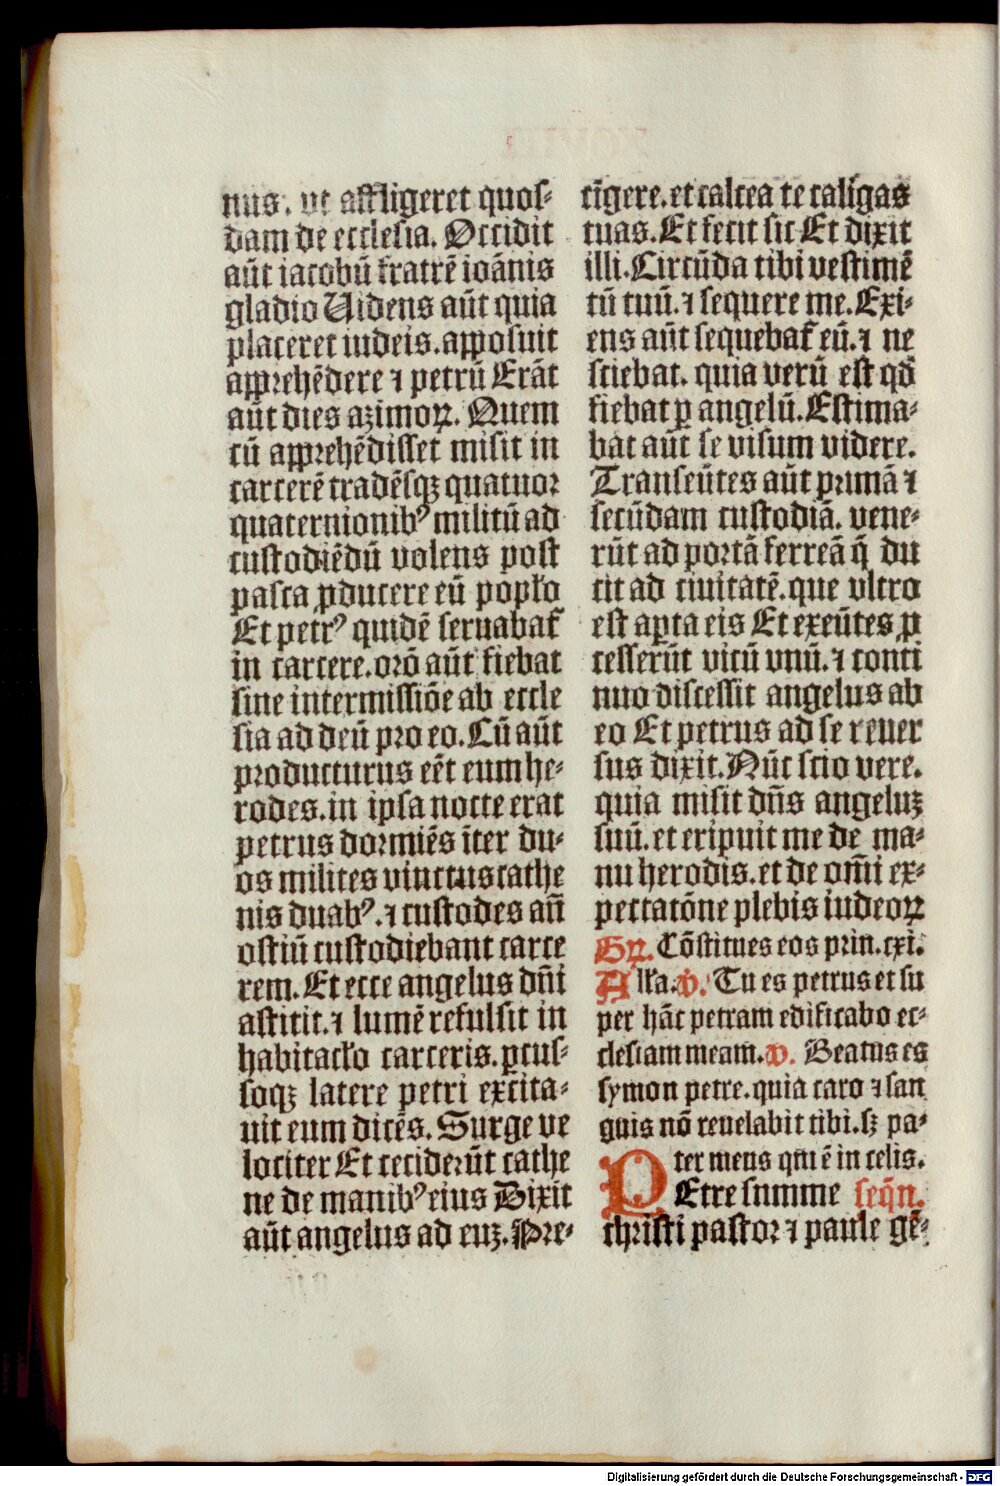 nus. vt affligeret quos-
dam de ecclesia. Occidit
aūt iacobū fratrē ioānis
gladio Uidens aūt quia
placeret iudeis. apposuit
apprehēdere ⁊ petrū Erāt
aūt dies azimoꝝ. Quem
cū apprehēdisset misit in
carcerē tradēsqꝫ quatuor
quaternionibꝰ militū ad
custodiēdū volens post
pasca ꝓducere eū popło
Et petrꝰ quidē seruabat̄
in carcere. orō aūt fiebat
sine intermissiōe ab eccle
sia ad deū pro eo. Cū aūt
producturus eēt eum he-
rodes. in ipsa nocte erat
petrus dormiēs īter du-
os milites vinctus cathe
nis duabꝰ. ⁊ custodes an̄
ostiū custodiebant carce
rem. Et ecce angelus dn̄i
astitit. ⁊ lumē refulsit in
habitacło carceris. ꝑcus-
soqꝫ latere petri excita-
uit eum dicēs. Surge ve
lociter Et ceciderūt cathe
ne de manibꝰ eius Dixit
aūt angelus ad euꝫ. Pre-
cīgere. et calcea te caligas
tuas. Et fecit sic Et dixit
illi. Circūda tibi vestimē
tū tuū. ⁊ sequere me. Exi-
ens aūt sequebat̄ eū. ⁊ ne
sciebat. quia verū est qd̄
fiebat ꝑ angelū. Estima-
bat aūt se visum videre.
Transeūtes aūt primā ⁊
secūdam custodiā. vene-
rūt ad portā ferreā q̄ du
cit ad ciuitatē. que vltro
est aꝑta eis Et exeūtes ꝓ
cesserūt vicū vnū. ⁊ conti
nuo discessit angelus ab
eo Et petrus ad se reuer
sus dixit. Nūc scio vere.
quia misit dn̄s angeluꝫ
suū. et eripuit me de ma-
nu herodis. et de om̄i ex-
pectatōne plebis iudeoꝝ
Gꝝ. Cōstitues eos prin. cxi.
Alła. v. Tu es petrus et su
per hāc petram edificabo ec-
clesiam meam. v. Beatus es
symon petre. quia caro ⁊ san
guis nō reuelabit tibi. sꝫ pa-
ter meus qui ē in celis.
PEtre summe seq̄n.
christi pastor ⁊ paule gē-
Digitalisierung gefördert durch die Deutsche Forschungsgemeinschaft - DFG